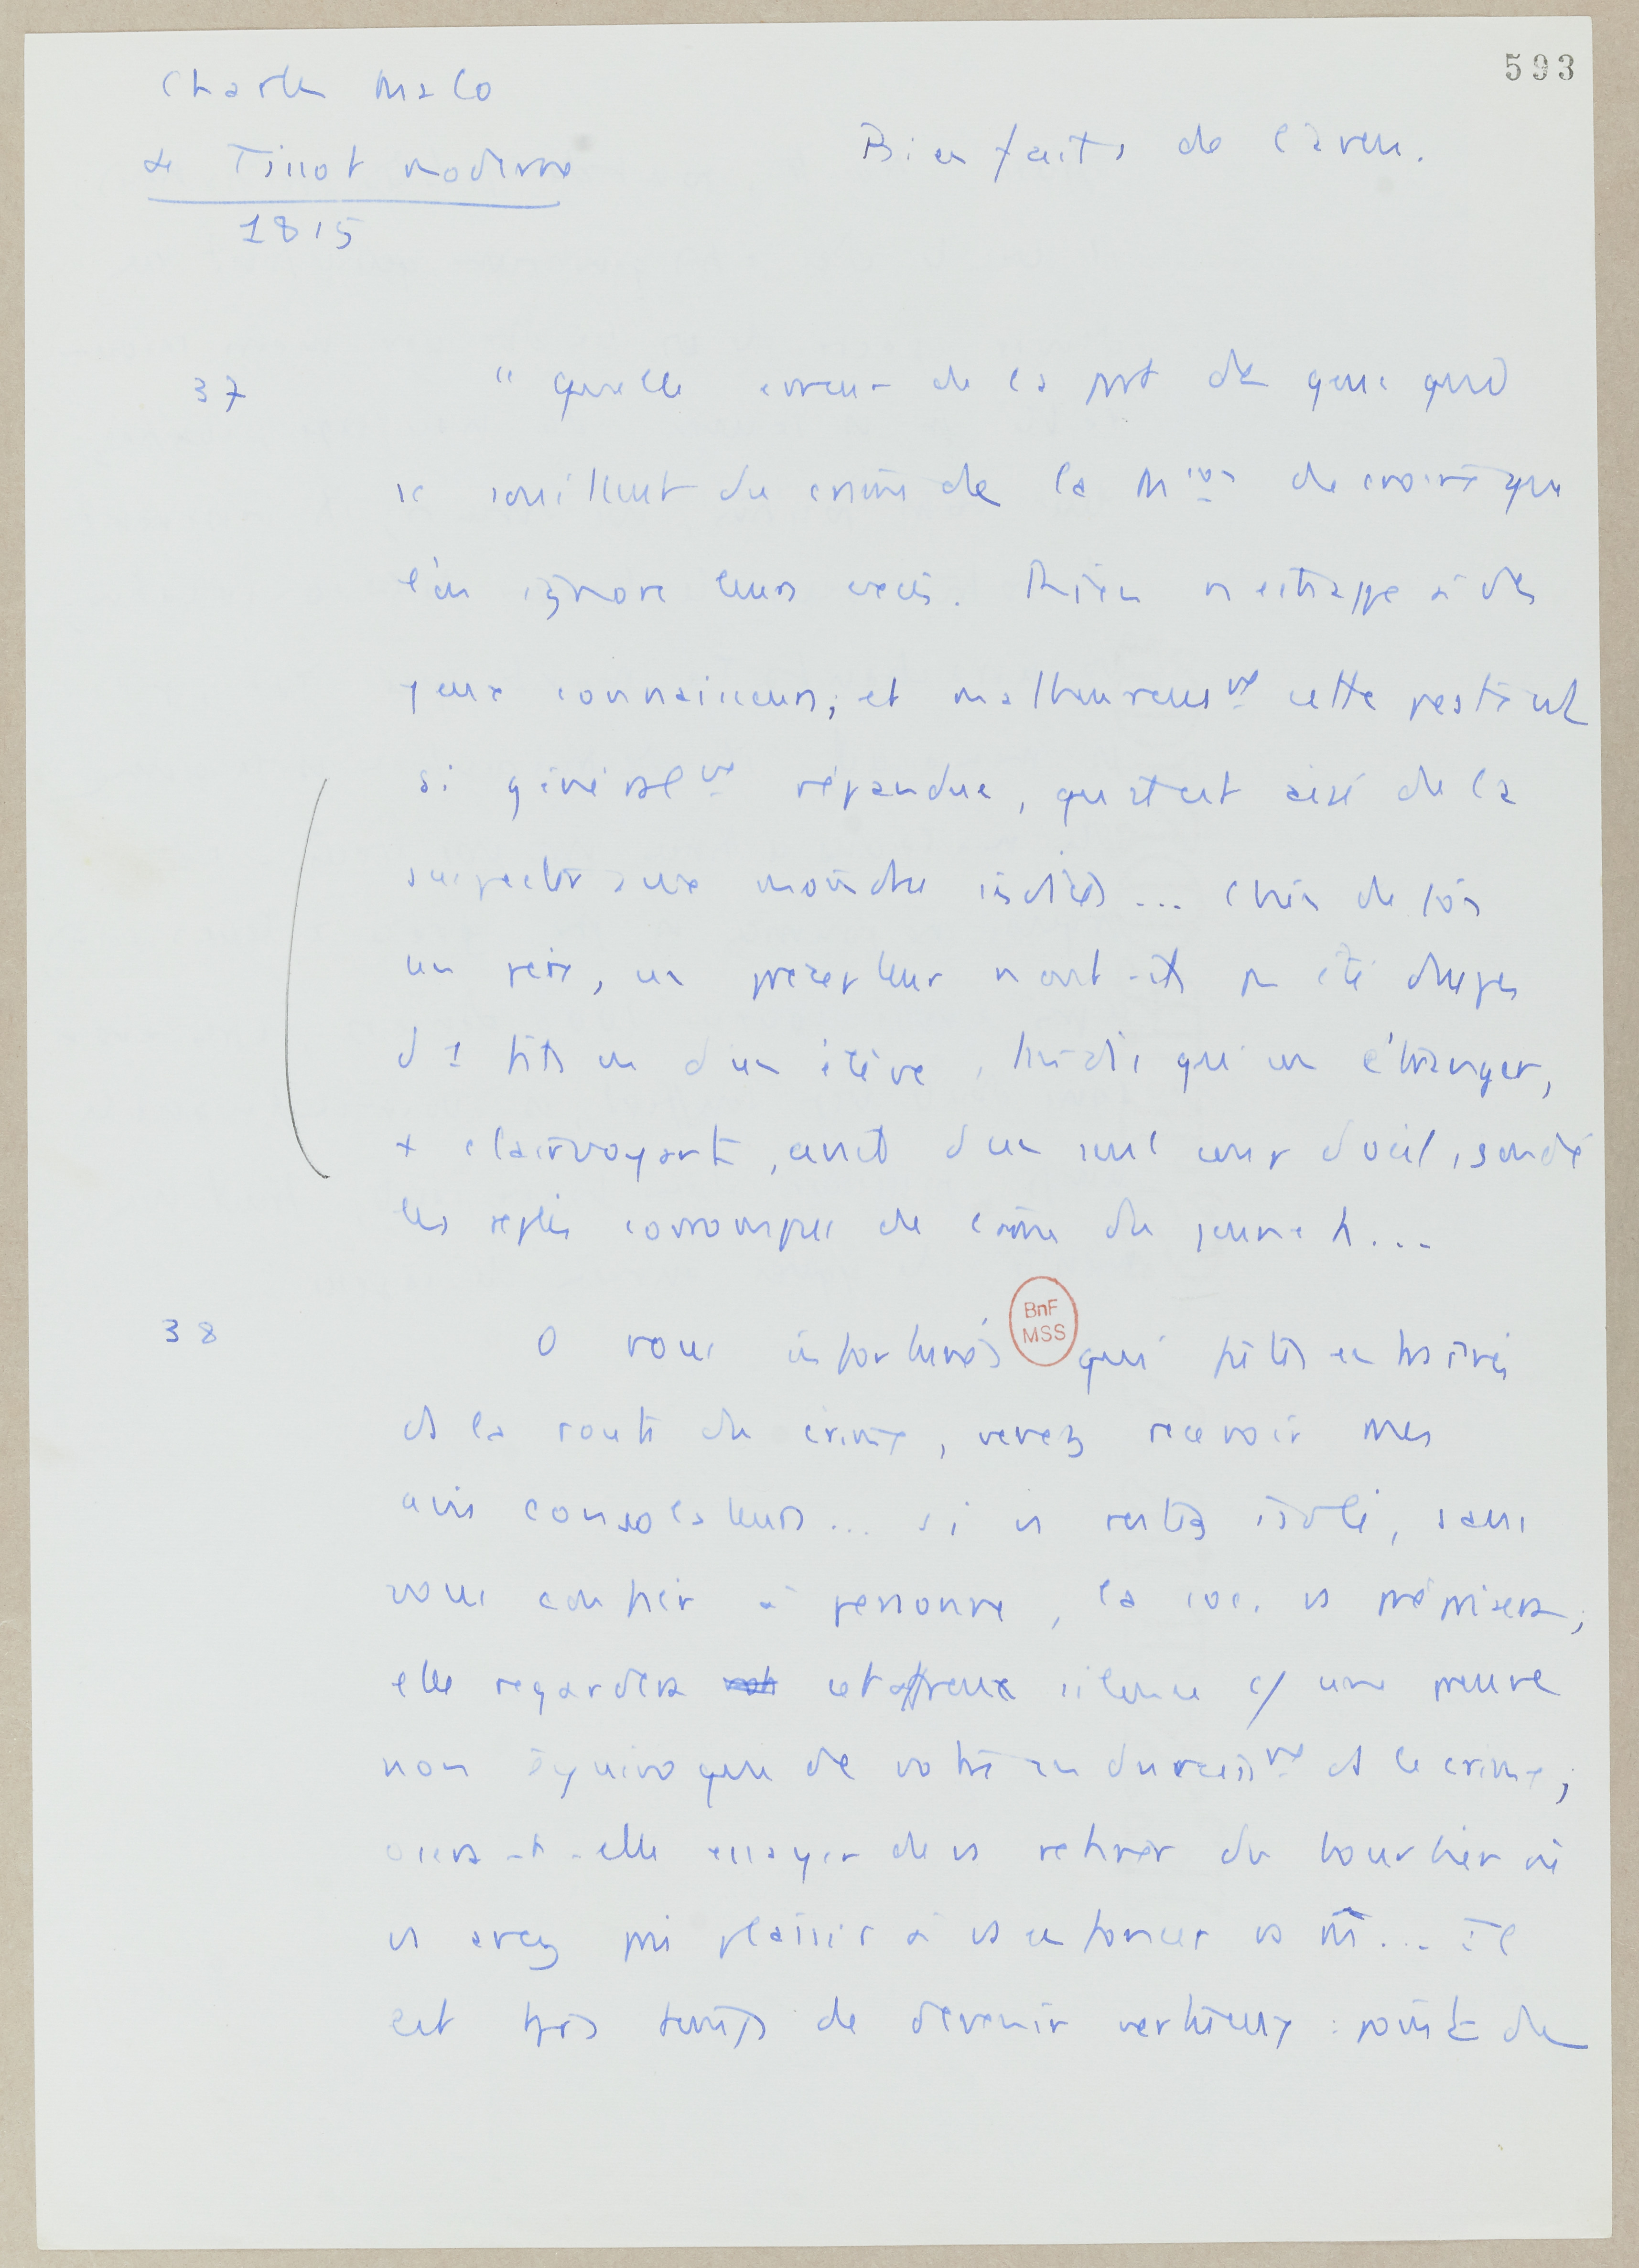 593
Charles Malo
Le Tissot moderne
1815
Bienfaits de l'aveu.
37
" quelle erreur de la part de ceux qui
se souillent du crime de la M^ion de croire que
l'on ignore leurs excès. Rien n'échappe à des
yeux connaisseurs; et malheureus^nt cette peste est
si général^nt répandue, qu'il est aisé de la
suspecter aux moindres indices... Chien de fois
un père, un précepteur n'ont-ils pas été dupes
d'1 fils ou d'un élève, tandis qu'un étranger,
+ clairvoyant, avait d'un seul coup d'œil, sondé
les replis corrompus de l'âme du jeune h...
38
O vous infortunés qui êtes entraînés
ds la route du crime, venez recevoir mes
avis consolateurs... si vs restez isolé, sans
vous confier à personne, la soc. vs méprisera;
elle regardera cet affreux silence c/ une preuve
non équivoque de votre endurciss^nt ds le crime;
osera-t-elle essayer de vs retirer du bourbier où
vs avez pris plaisir à vs enfoncer vs m... Il
est tjrs temps de devenir vertueux : point de
BnF
MSS